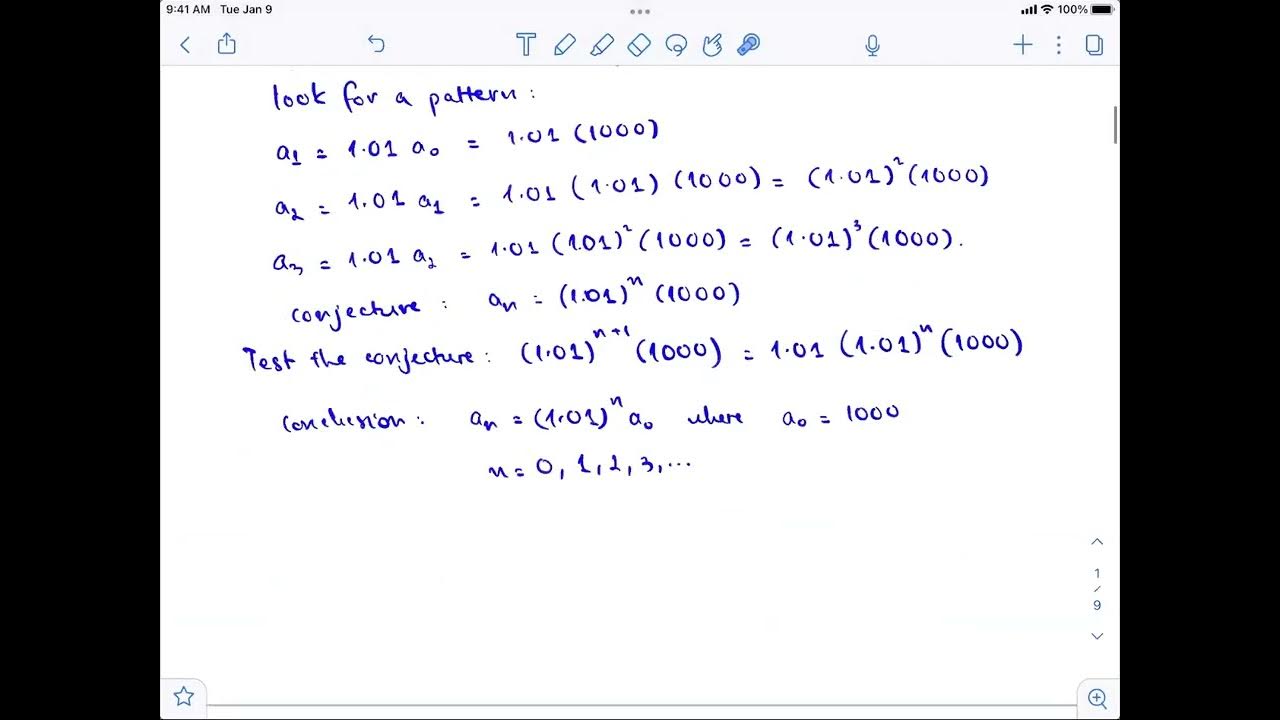 9:41 AM Tue Jan 9 100%
look for a pattern:
a₁ = 1.01 a₀ = 1.01 (1000)
a₂ = 1.01 a₁ = 1.01 (1.01) (1000) = (1.01)² (1000)
a₃ = 1.01 a₂ = 1.01 (1.01)² (1000) = (1.01)³ (1000).
conjecture: aₙ = (1.01)ⁿ (1000)
Test the conjecture: (1.01)ⁿ⁺¹ (1000) = 1.01 (1.01)ⁿ (1000)
conclusion: aₙ = (1.01)ⁿ a₀ where a₀ = 1000
n = 0, 1, 2, 3, ...
1
/
9